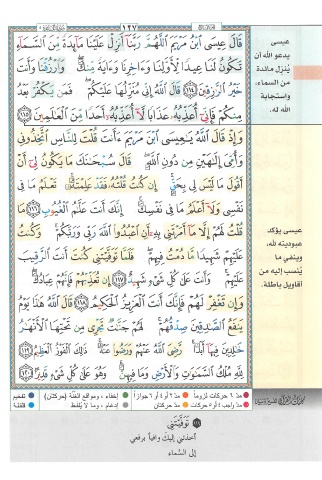 ١٢٧
قَالَ عِيسَى ابْنُ مَرْيَمَ اللَّهُمَّ رَبَّنَا أَنزِلْ عَلَيْنَا مَائِدَةً مِّنَ السَّمَاءِ
تَكُونُ لَنَا عِيدًا لِّأَوَّلِنَا وَآخِرِنَا وَآيَةً مِّنكَ وَارْزُقْنَا وَأَنتَ
خَيْرُ الرَّازِقِينَ ﴿١١٤﴾ قَالَ اللَّهُ إِنِّي مُنَزِّلُهَا عَلَيْكُمْ فَمَن يَكْفُرْ بَعْدُ
مِنكُمْ فَإِنِّي أُعَذِّبُهُ عَذَابًا لَّا أُعَذِّبُهُ أَحَدًا مِّنَ الْعَالَمِينَ ﴿١١٥﴾
وَإِذْ قَالَ اللَّهُ يَا عِيسَى ابْنَ مَرْيَمَ أَأَنتَ قُلْتَ لِلنَّاسِ اتَّخِذُونِي
وَأُمِّيَ إِلَٰهَيْنِ مِن دُونِ اللَّهِ قَالَ سُبْحَانَكَ مَا يَكُونُ لِي أَنْ
أَقُولَ مَا لَيْسَ لِي بِحَقٍّ إِن كُنتُ قُلْتُهُ فَقَدْ عَلِمْتَهُ تَعْلَمُ مَا فِي
نَفْسِي وَلَا أَعْلَمُ مَا فِي نَفْسِكَ إِنَّكَ أَنتَ عَلَّامُ الْغُيُوبِ ﴿١١٦﴾ مَا
قُلْتُ لَهُمْ إِلَّا مَا أَمَرْتَنِي بِهِ أَنِ اعْبُدُوا اللَّهَ رَبِّي وَرَبَّكُمْ وَكُنتُ
عَلَيْهِمْ شَهِيدًا مَّا دُمْتُ فِيهِمْ فَلَمَّا تَوَفَّيْتَنِي كُنتَ أَنتَ الرَّقِيبَ
عَلَيْهِمْ وَأَنتَ عَلَىٰ كُلِّ شَيْءٍ شَهِيدٌ ﴿١١٧﴾ إِن تُعَذِّبْهُمْ فَإِنَّهُمْ عِبَادُكَ
وَإِن تَغْفِرْ لَهُمْ فَإِنَّكَ أَنتَ الْعَزِيزُ الْحَكِيمُ ﴿١١٨﴾ قَالَ اللَّهُ هَٰذَا يَوْمُ
يَنفَعُ الصَّادِقِينَ صِدْقُهُمْ لَهُمْ جَنَّاتٌ تَجْرِي مِن تَحْتِهَا الْأَنْهَارُ
خَالِدِينَ فِيهَا أَبَدًا رَّضِيَ اللَّهُ عَنْهُمْ وَرَضُوا عَنْهُ ذَٰلِكَ الْفَوْزُ الْعَظِيمُ ﴿١١٩﴾
لِلَّهِ مُلْكُ السَّمَاوَاتِ وَالْأَرْضِ وَمَا فِيهِنَّ وَهُوَ عَلَىٰ كُلِّ شَيْءٍ قَدِيرٌ ﴿١٢٠﴾
عيسى
يدعو الله أن
يُنزل مائدة
من السماء،
واستجابة
الله له.
عيسى يؤكد
عبوديته لله،
وينفي ما
يُنسب إليه من
أقاويل باطلة.
مدّ ٦ حركات لزوماً
مدّ ٢ أو ٤ أو ٦ جوازاً
إخفاء، ومواقع الغنّة (حركتان)
تفخيم
مدّ واجب ٤ أو ٥ حركات
مدّ حركتان
إدغام، وما لا يُلفظ
قلقلة
تَوَفَّيْتَنِي
أخذتني إليك وافياً برفعي
إلى السّماء